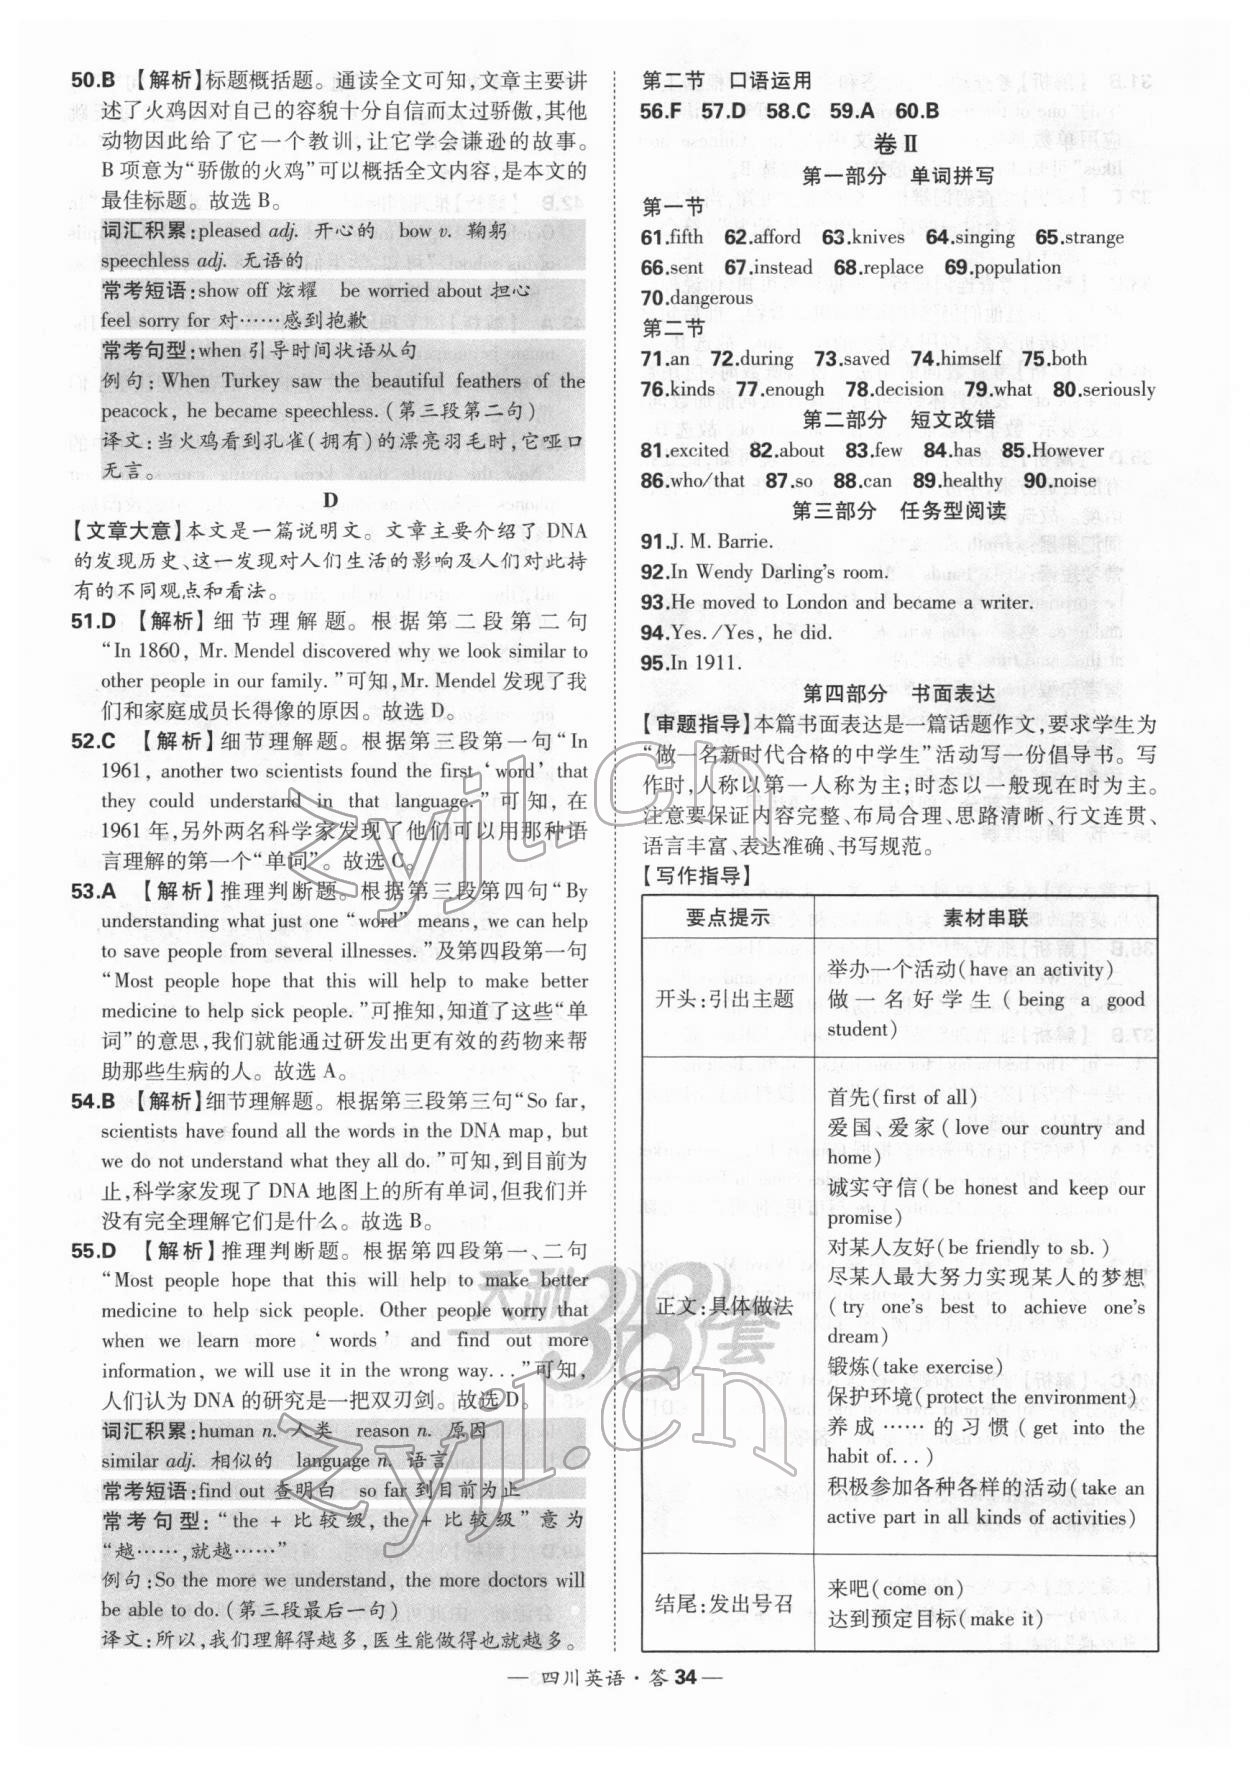 50.B 【解析】标题概括题。通读全文可知,文章主要讲
述了火鸡因对自己的容貌十分自信而太过骄傲,其他
动物因此给了它一个教训,让它学会谦逊的故事。
B 项意为“骄傲的火鸡”可以概括全文内容,是本文的
最佳标题。故选 B。
词汇积累:pleased adj. 开心的 bow v. 鞠躬
speechless adj. 无语的
常考短语:show off 炫耀 be worried about 担心
feel sorry for 对……感到抱歉
常考句型:when 引导时间状语从句
例句:When Turkey saw the beautiful feathers of the
peacock, he became speechless.(第三段第二句)
译文:当火鸡看到孔雀(拥有)的漂亮羽毛时,它哑口
无言。
D
【文章大意】本文是一篇说明文。文章主要介绍了 DNA
的发现历史、这一发现对人们生活的影响及人们对此持
有的不同观点和看法。
51.D 【解析】细节理解题。根据第二段第二句
“In 1860, Mr. Mendel discovered why we look similar to
other people in our family. ”可知,Mr. Mendel 发现了我
们和家庭成员长得像的原因。故选 D。
52.C 【解析】细节理解题。根据第三段第一句“In
1961, another two scientists found the first ‘word’ that
they could understand in that language.”可知,在
1961 年,另外两名科学家发现了他们可以用那种语
言理解的第一个“单词”。故选 C。
53.A 【解析】推理判断题。根据第三段第四句“By
understanding what just one “word” means, we can help
to save people from several illnesses.”及第四段第一句
“Most people hope that this will help to make better
medicine to help sick people.”可推知,知道了这些“单
词”的意思,我们就能通过研发出更有效的药物来帮
助那些生病的人。故选 A。
54.B 【解析】细节理解题。根据第三段第三句“So far,
scientists have found all the words in the DNA map, but
we do not understand what they all do. ”可知,到目前为
止,科学家发现了 DNA 地图上的所有单词,但我们并
没有完全理解它们是什么。故选 B。
55.D 【解析】推理判断题。根据第四段第一、二句
“Most people hope that this will help to make better
medicine to help sick people. Other people worry that
when we learn more ‘words’ and find out more
information, we will use it in the wrong way. . .”可知,
人们认为 DNA 的研究是一把双刃剑。故选 D。
词汇积累:human n. 人类 reason n. 原因
similar adj. 相似的 language n. 语言
常考短语:find out 查明白 so far 到目前为止
常考句型:“the + 比较级, the + 比较级”意为
“越……,就越……”
例句:So the more we understand, the more doctors will
be able to do.(第三段最后一句)
译文:所以,我们理解得越多,医生能做得也就越多。
第二节 口语运用
56.F 57.D 58.C 59.A 60.B
卷Ⅱ
第一部分 单词拼写
第一节
61.fifth 62.afford 63.knives 64.singing 65.strange
66.sent 67.instead 68.replace 69.population
70.dangerous
第二节
71.an 72.during 73.saved 74.himself 75.both
76.kinds 77.enough 78.decision 79.what 80.seriously
第二部分 短文改错
81.excited 82.about 83.few 84.has 85.However
86.who/that 87.so 88.can 89.healthy 90.noise
第三部分 任务型阅读
91.J. M. Barrie.
92.In Wendy Darling’s room.
93.He moved to London and became a writer.
94.Yes. /Yes, he did.
95.In 1911.
第四部分 书面表达
【审题指导】本篇书面表达是一篇话题作文,要求学生为
“做一名新时代合格的中学生”活动写一份倡导书。写
作时,人称以第一人称为主;时态以一般现在时为主。
注意要保证内容完整、布局合理、思路清晰、行文连贯、
语言丰富、表达准确、书写规范。
【写作指导】
要点提示 素材串联
开头:引出主题
举办一个活动(have an activity)
做一名好学生(being a good
student)
正文:具体做法
首先(first of all)
爱国、爱家(love our country and
home)
诚实守信(be honest and keep our
promise)
对某人友好(be friendly to sb. )
尽某人最大努力实现某人的梦想
(try one’s best to achieve one’s
dream)
锻炼(take exercise)
保护环境(protect the environment)
养成……的习惯(get into the
habit of. . .)
积极参加各种各样的活动(take an
active part in all kinds of activities)
结尾:发出号召
来吧(come on)
达到预定目标(make it)
— 四川英语·答 34 —
zyjl.cn
天利38套
zyjl.cn